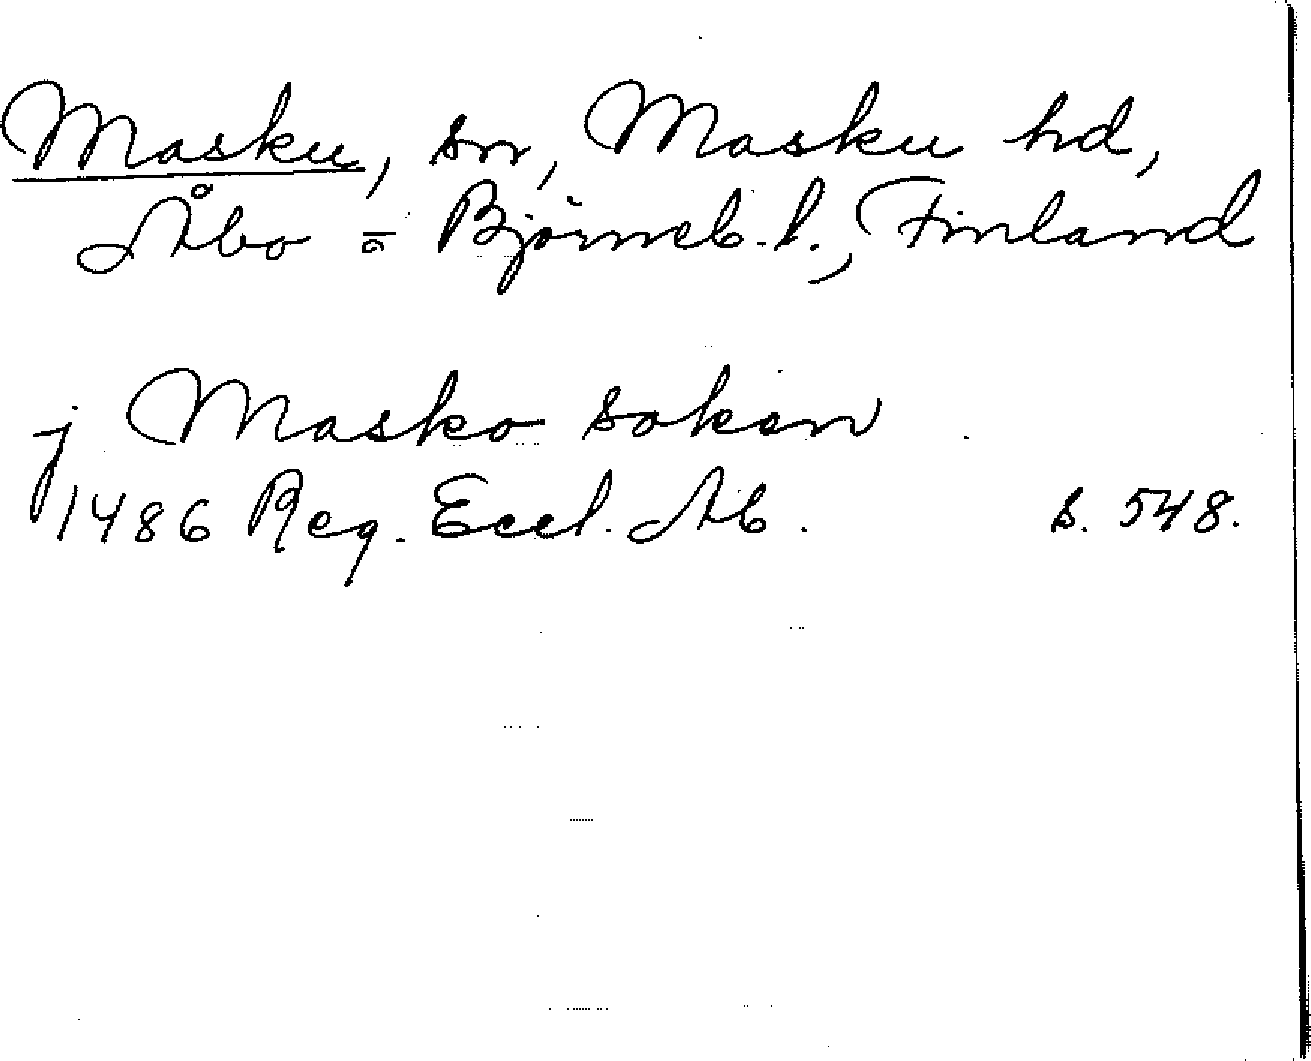 Masku, sn, Masku hd,
Åbo o Björneb. l., Finland
j Masko soken
1486 Reg. Eccl. Ab. s. 548.